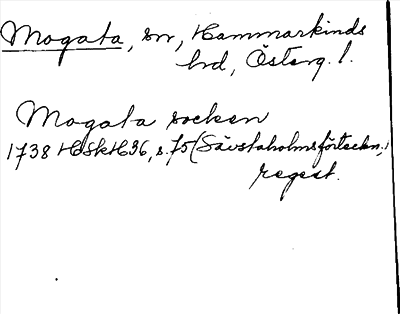 Mogata, sn, Hammarkinds
hd, Österg. l.
Mogata socken
1738 HSkH36, s. 75 (Sävstaholmsförteckn.,
regest.